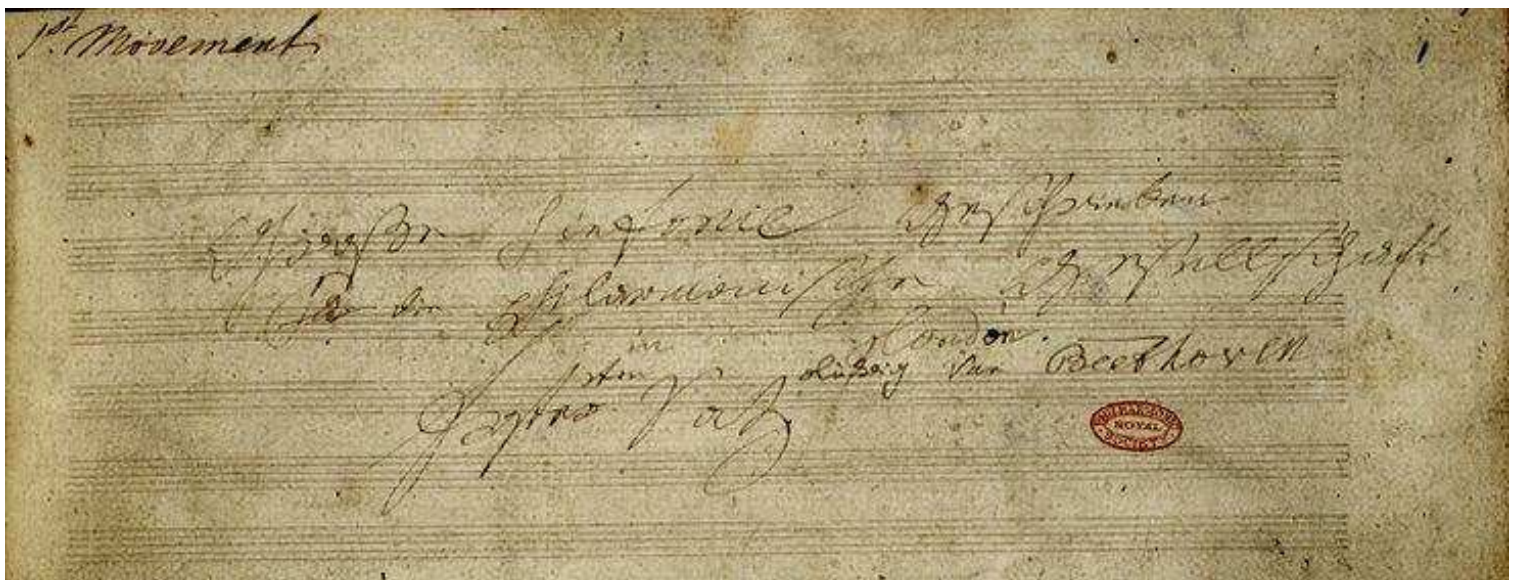 1st Movement
1
Große Sinfonie geschrieben
Für die Philarmonische Gesellschaft
in London.
von Ludwig van Beethoven
erster Satz
PHILHARMONIC
ROYAL
SOCIETY